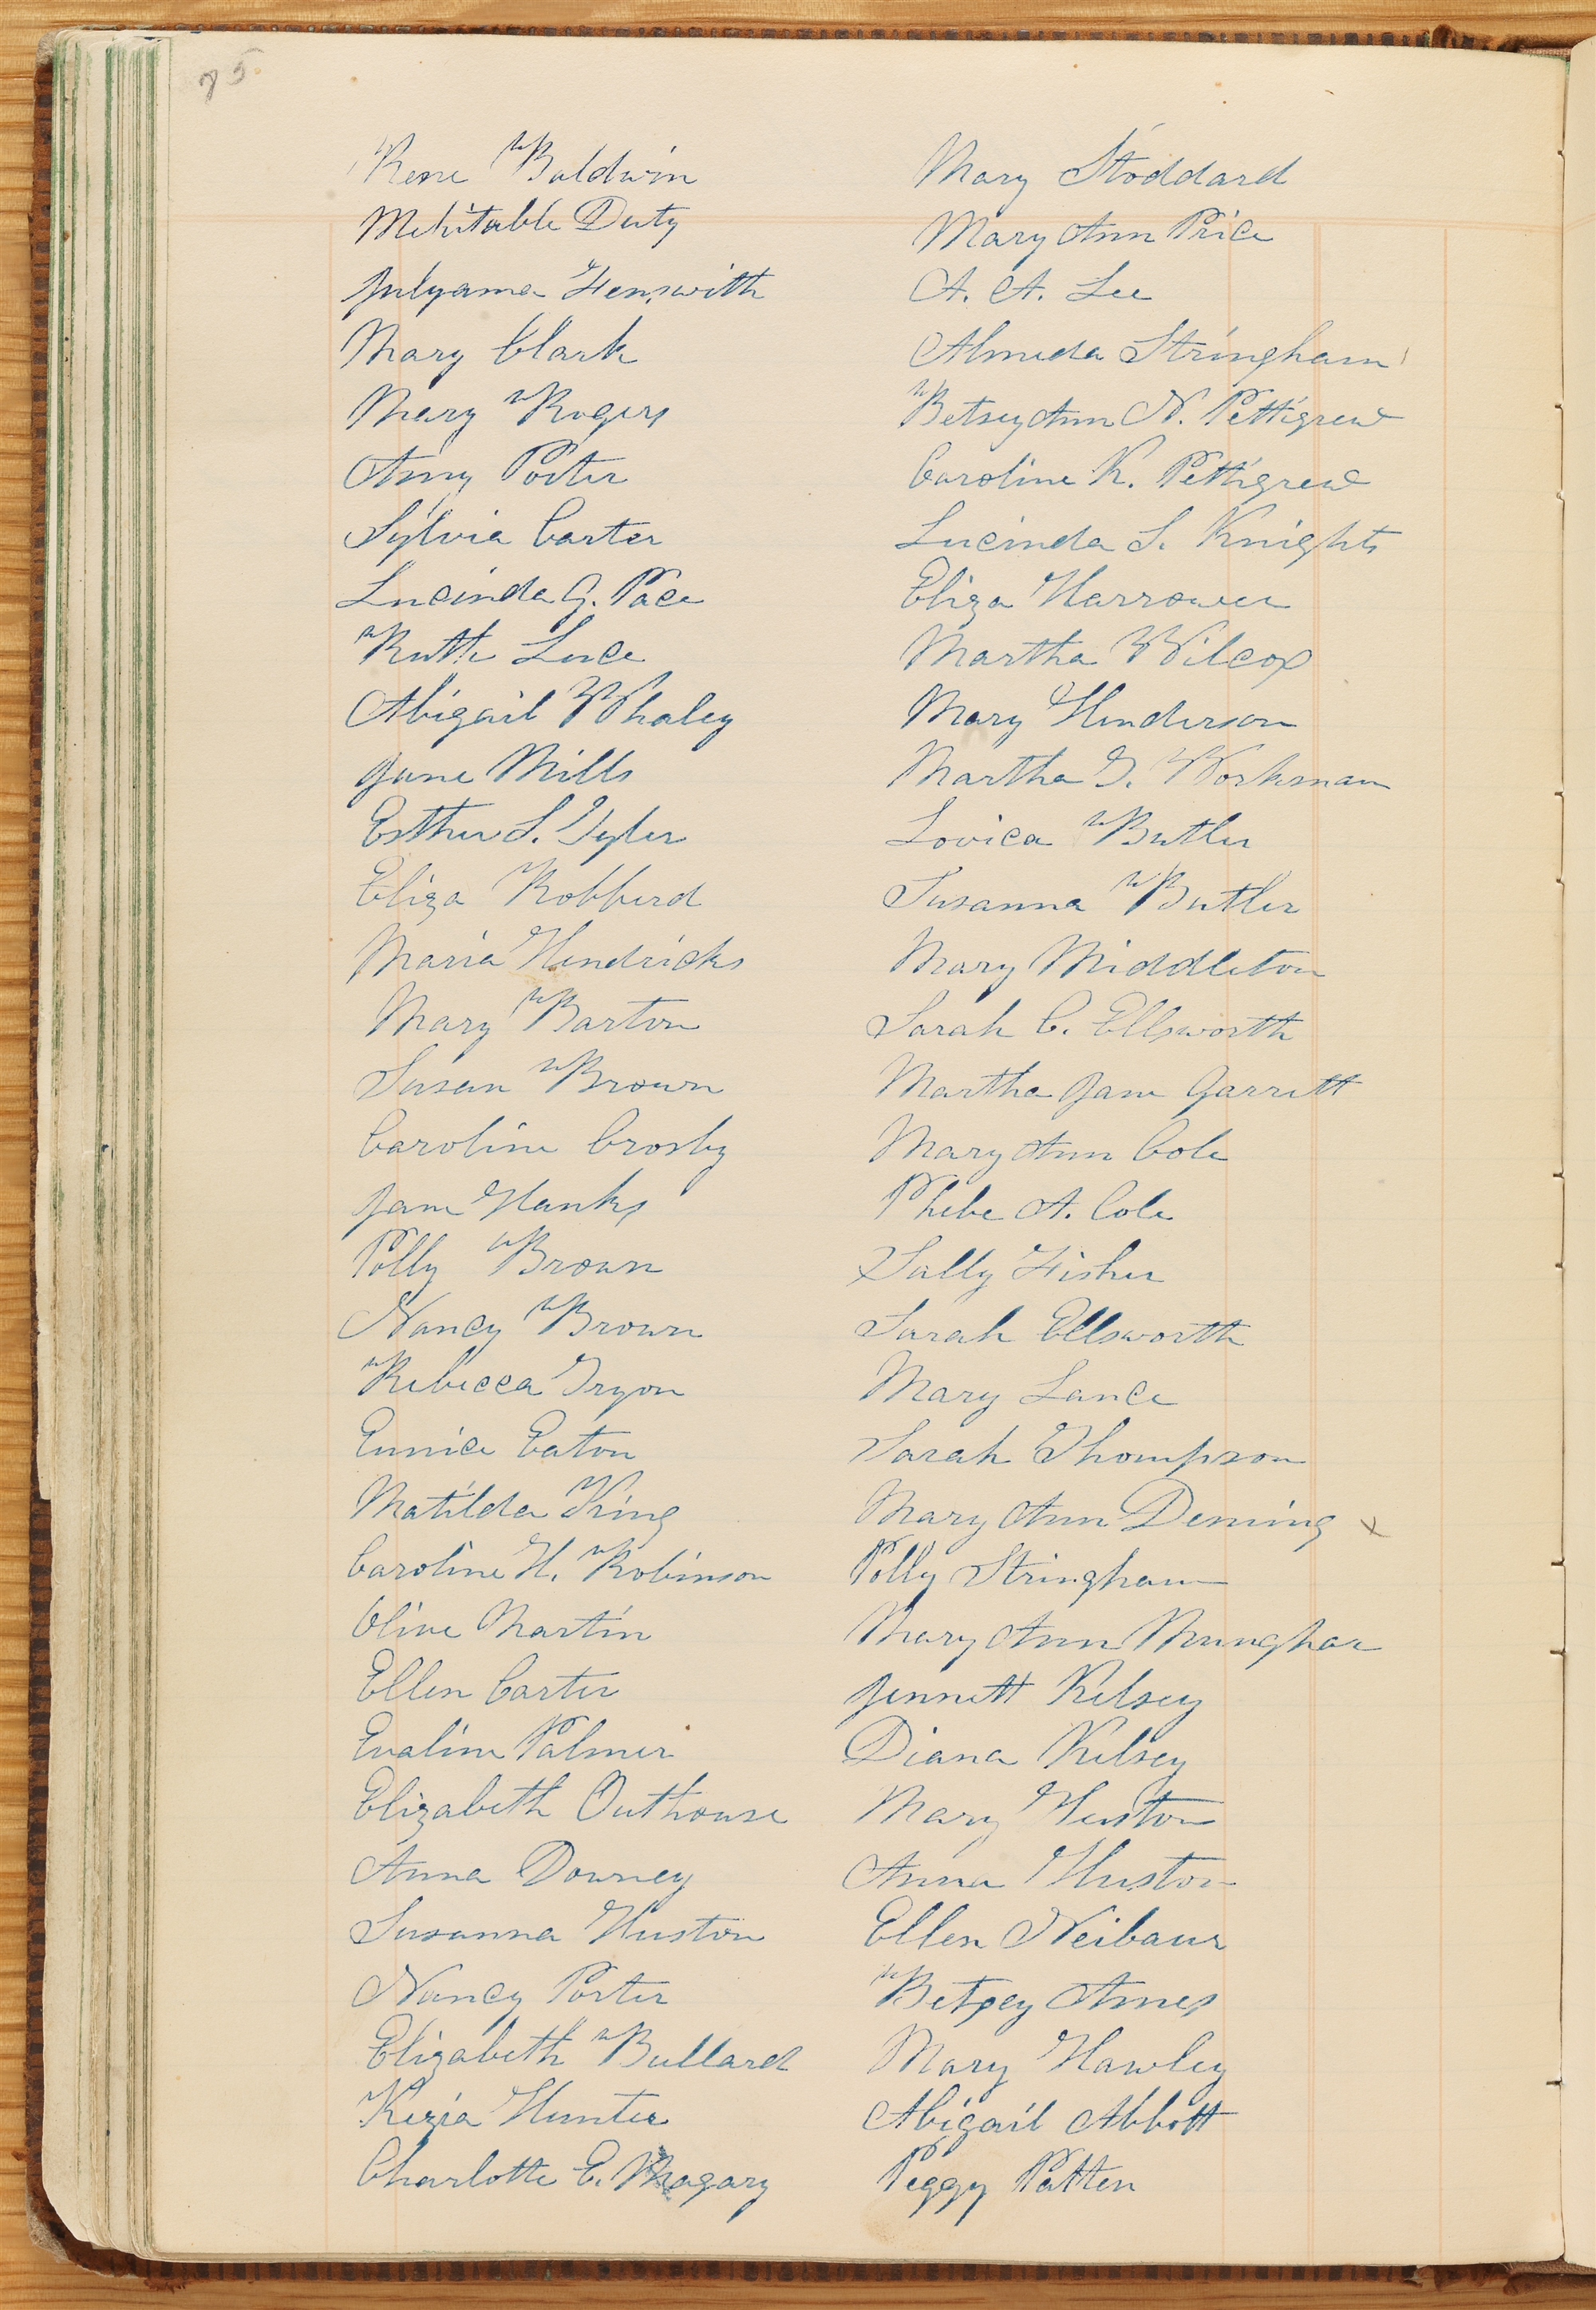 75
Rene Baldwin
Mehitable Duty
Julyama Henswith
Mary Clark
Mary Rogers
Amy Porter
Sylvia Carter
Lucinda G. Pace
Ruth Luce
Abigail Whaley
Jane Mills
Esther S. Tyler
Eliza Robberd
Maria Hendricks
Mary Barton
Susan Brown
Caroline Crosby
Jane Hanks
Polly Brown
Nancy Brown
Rebecca Tryon
Eunice Eaton
Matilda King
Caroline H. Robinson
Olive Martin
Ellen Carter
Evaline Palmer
Elizabeth Outhouse
Anna Downey
Susanna Huston
Nancy Porter
Elizabeth Bullard
Kezia Hunter
Charlotte E. Magary
Mary Stoddard
Mary Ann Price
A. A. Lee
Almeda Stringham
Betsey Ann N. Pettigrew
Caroline K. Pettigrew
Lucinda S. Knights
Eliza Harrower
Martha Wilcox
Mary Henderson
Martha G. Workman
Lovica Butler
Susanna Butler
Mary Middleton
Sarah C. Ellsworth
Martha Jane Garrett
Mary Ann Cole
Phebe A. Cole
Sally Fisher
Sarah Ellsworth
Mary Lance
Sarah Thompson
Mary Ann Deming x
Polly Stringham
Mary Ann
Jennett Kelsey
Diana Kelsey
Mary Huston
Anna Huston
Ellen Neibaur
Betsey Ames
Mary Hawley
Abigail Abbott
Peggy Patten